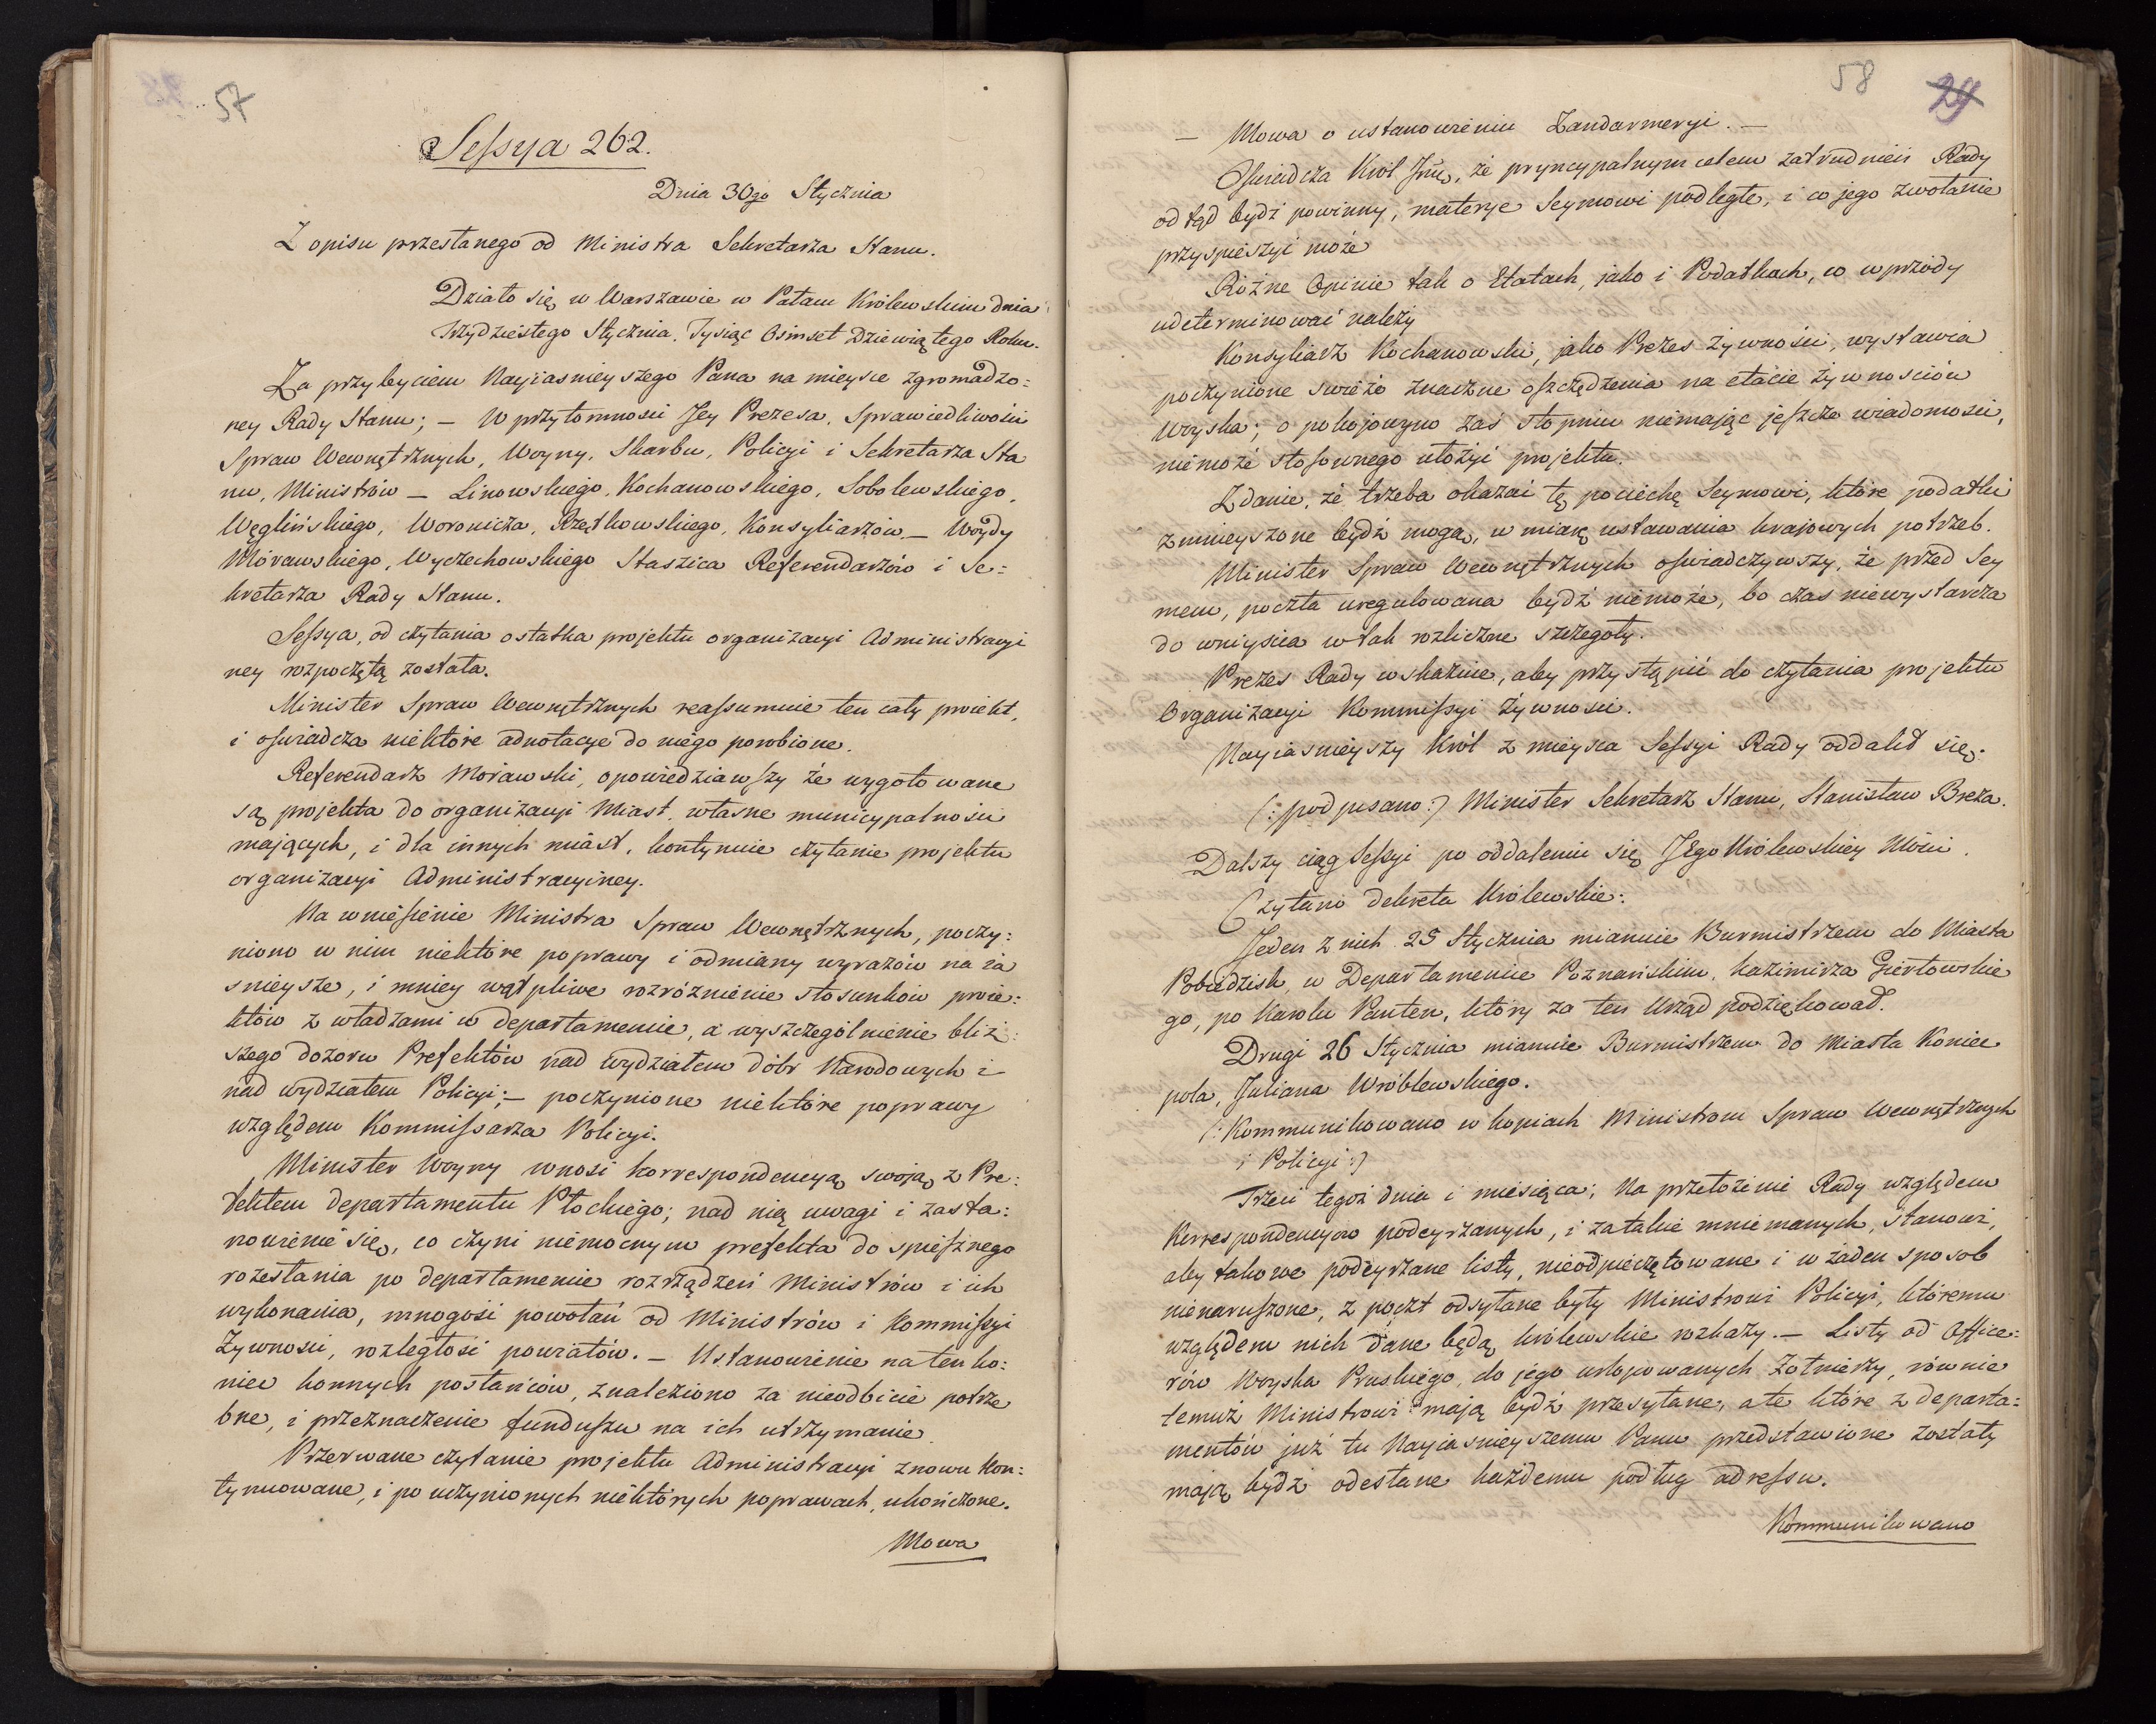 57
Sessya 262.
Dnia 30go Stycznia
Z opisu przesłanego od Ministra Sekretarza Stanu.
Działo się w Warszawie w Pałacu Królewskim dnia
trzydziestego Stycznia, Tysiąc Osimset Dziewiątego Roku.
Za przybyciem Nayiasnieyszego Pana na mieysce zgromadzo:
ney Rady Stanu; – W przytomnosci Jey Prezesa, Sprawiedliwości
Spraw Wewnętrznych, Woyny, Skarbu, Policyi i Sekretarza Sta
nu, Ministrów – Linowskiego, Kochanowskiego, Sobolewskiego,
Węglińskiego, Woronicza, Rzętkowskiego, Konsyliarzów – Woydy
Morawskiego, Wyczechowskiego Staszica Referendarzów i Se:
kretarza Rady Stanu.
Sessya, od czytania ostatka projektu organizacyi Administracyi
ney rozpoczętą została.
Minister Spraw Wewnętrznych reassumuie ten cały proiekt,
i oswiadcza niektóre adnotacye do niego porobione.
Referendarz Morawski, opowiedziawszy że wygotowane
są projekta do organizacyi Miast, własne municypalnosci
mających, i dla innych miast, kontynuie czytanie projektu
organizacyi Administracyiney.
Na wniesienie Ministra Spraw Wewnętrznych, poczy:
niono w nim niektóre poprawy i odmiany wyrazów na ia
snieysze, i mniey wątpliwe rozróżnienie stosunków prefe:
któw z władzami w departamencie, a wyszczególnienie bliż:
szego dozoru Prefektów nad wydziałem dóbr Narodowych i
nad wydziałem Policyi; – poczynione niektóre poprawy
względem Kommissarza Policyi.
Minister Woyny wnosi korrespondencyą swoją z Pre:
fektem departamentu Płockiego; nad nią uwagi i zasta:
nowienie się, co czyni niemocnym prefekta do spiesznego
rozesłania po departamencie rozrządzeń Ministrów i ich
wykonania, mnogość powołań od Ministrów i Kommissyi
Żywnosci, rozległość powiatów. – Ustanowienie na ten ko:
niec konnych posłańców, znaleziono za nieodbicie potrze
bne, i przeznaczenie funduszu na ich utrzymanie.
Przerwane czytanie projektu Administracyi znowu kon:
tynuowane, i po uczynionych niektórych poprawach, ukończone.
Mowa
58
29
– Mowa o ustanowieniu Żandarmeryi. –
Oswiadcza Król Jmć, że pryncypalnym celem zatrudnień Rady
odtąd bydź powinny, materye Seymowi podległe, i co jego zwołanie
przyspieszyć może
Różne Opinie tak o Etatach, jako i Podatkach, co wprzódy
udeterminować należy
Konsyliarz Kochanowski, jako Prezes żywności, wystawia
poczynione swieżo znaczne oszczędzenia na etacie żywnosciów
Woyska; o pokojowym zaś stopniu niemając jeszcze wiadomosci,
niemoże stosownego ułożyć projektu.
Zdanie, że trzeba okazać tę pociechę Seymowi, które podatki
zmnieyszone bydź mogą, w miarę ustawania krajowych potrzeb.
Minister Spraw Wewnętrznych oswiadczywszy, że przed Sey
mem, poczta uregulowana bydź niemoże, bo czas niewystarcza
do wniyscia w tak rozliczne szczegóły.
Prezes Rady wskazuie, aby przystąpić do czytania projektu
Organizacyi Kommissyi Żywnosci.
Nayiasnieyszy Król z mieysca Sessyi Rady oddalił się.
(:podpisano:) Minister Sekretarz Stanu, Stanisław Breza.
Dalszy ciąg Sessyi po oddaleniu się JEgo Królewskiey Mości.
Czytano dekreta Królewskie:
Jeden z nich 25 Stycznia mianuie Burmistrzem do Miasta
Pobiedzisk, w Departamencie Poznańskim, Kazimirza Giertowskie
go, po Karolu Panten, który za ten Urząd podziękował.
Drugi 26 Stycznia mianuie Burmistrzem do Miasta Koniec
pola, Juliana Wróblewskiego.
(:Kommunikowano w kopiach Ministrom Spraw Wewnętrznych
i Policyi:)
Trzeci tegoż dnia i miesiąca; na przełożenie Rady względem
Korrespondencyow podeyrzanych, i za takie mniemanych, stanowi,
aby takowe podeyrzane listy, nieodpieczętowane i w żaden sposob
nienaruszone, z poczt odsyłane były Ministrowi Policyi, któremu
względem nich dane będą królewskie rozkazy. – Listy od Office:
rów Woyska Pruskiego, do jego urlopowanych Żołnierzy, równie
temuż Ministrowi mają bydź przesyłane, a te które z departa:
mentów już tu Nayiasnieyszemu Panu przedstawione zostały
mają bydź odesłane każdemu podług adressu.
Kommunikowano